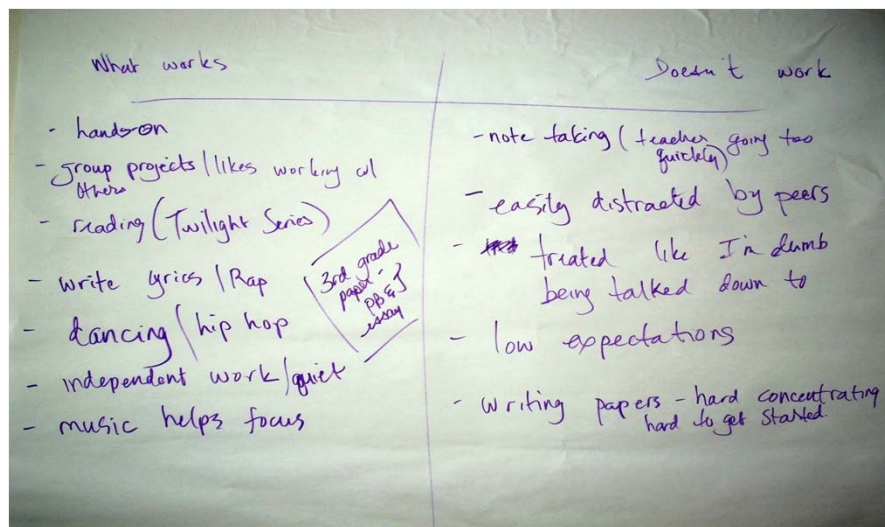 What works
- hands-on
- group projects / likes working w/
others
- reading (Twilight Series)
- write lyrics / Rap
- dancing / hip hop
- independent work / quiet
- music helps focus
3rd grade
paper -
PB & J
essay
Doesn't work
- note taking (teacher going too
quickly)
- easily distracted by peers
- treated like I'm dumb
being talked down to
- low expectations
- writing papers - hard concentrating
hard to get started.